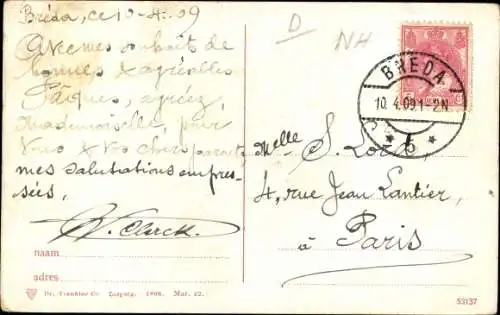 Bréda, ce 10-4-09
D
NH
Avec mes souhait de
bonnes & agréables
Pâques, agréez,
Mademoiselle, pour
Vous & Vos chers parents
mes salutations empres-
sées,
Clerck.
naam
adres
BREDA
10.4.09.1-2N
Melle S. Lord
4, rue Jean Lantier,
à Paris
Dr. Trenkler Co. Leipzig. 1908. Mar. 22.
53137